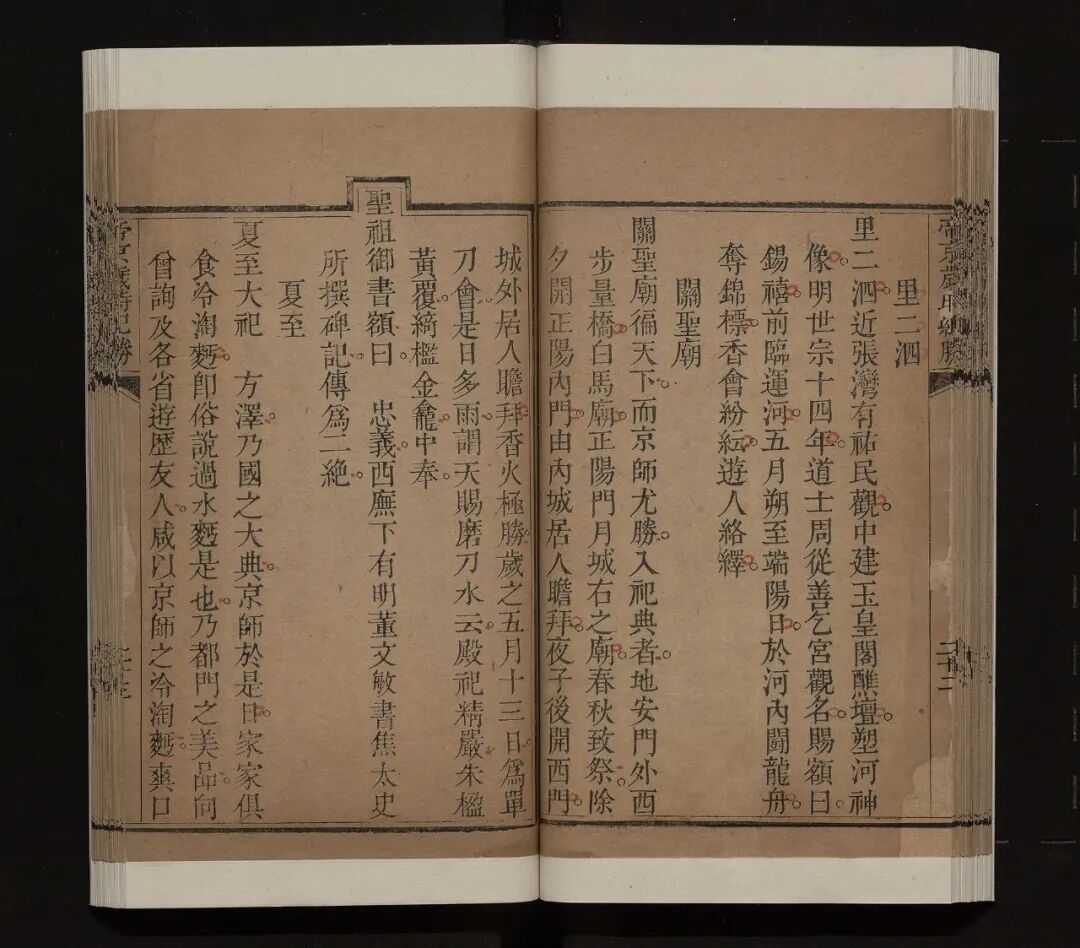 帝京歲時紀勝
里二泗
里二泗近張灣有祐民觀中建玉皇閣醮壇塑河神
像明世宗十四年道士周從善乞宮觀名賜額曰
錫禧前臨運河五月朔至端陽日於河內鬬龍舟
奪錦標香會紛紜遊人絡繹
關聖廟
關聖廟徧天下而京師尤勝入祀典者地安門外西
步量橋白馬廟正陽門月城右之廟春秋致祭除
夕開正陽內門由內城居人瞻拜夜子後開西門
城外居人瞻拜香火極勝歲之五月十三日爲單
刀會是日多雨謂天賜磨刀水云殿祀精嚴朱楹
黃覆綺檻金龕中奉
聖祖御書額曰 忠義西廡下有明董文敏書焦太史
所撰碑記傳爲二絶
夏至
夏至大祀 方澤乃國之大典京師於是日家家俱
食冷淘麪卽俗說過水麪是也乃都門之美品向
曾詢及各省遊歷友人咸以京師之冷淘麪爽口
帝京歲時紀勝